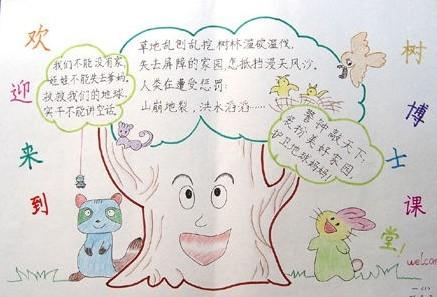 欢迎来到
我们不能没有家,
娃娃不能失去爹妈。
拯救我们的地球,
实干不能讲空话。
草地乱刨乱挖,树林滥砍滥伐。
失去屏障的家园,怎抵挡漫天风沙。
人类在遭受惩罚:
山崩地裂,洪水滔滔……
警钟敲天下,
装扮美好家园,
护卫地球妈妈!
树博士课堂!
welcom